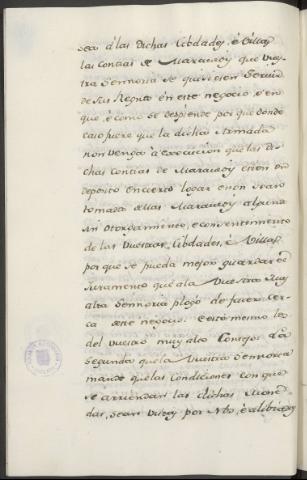 Sean á las Dichas Cibdades, é Villas
las contias de Maravedis que Vues-
tra Sennoria se quiere en Servir
de sus Regnos en este negocio, é en
que, é como se despiende por que donde
caso fuere que la dicha Armada
non venga á execucion que las di-
chas contias de Maravedis esten en
deposito en cierto logar é non sean
tomados dellas Maravedis alguna
sin otorgamiento, é consentimiento
de las Vuestras Cibdades, é Villas,
por que se pueda mejor guardar el
Juramento que á la Vuestra Muy
alta Sennoria plogo de facer cer-
ca deste negocio. é esto mesmo los
del Vuestro muy alto Consejo. é la
Segunda que la Vuestra Sennoria
mande que las Condiciones con que
se arriendan las dichas Mone-
das, sean vistas por Nos, é alibiadas